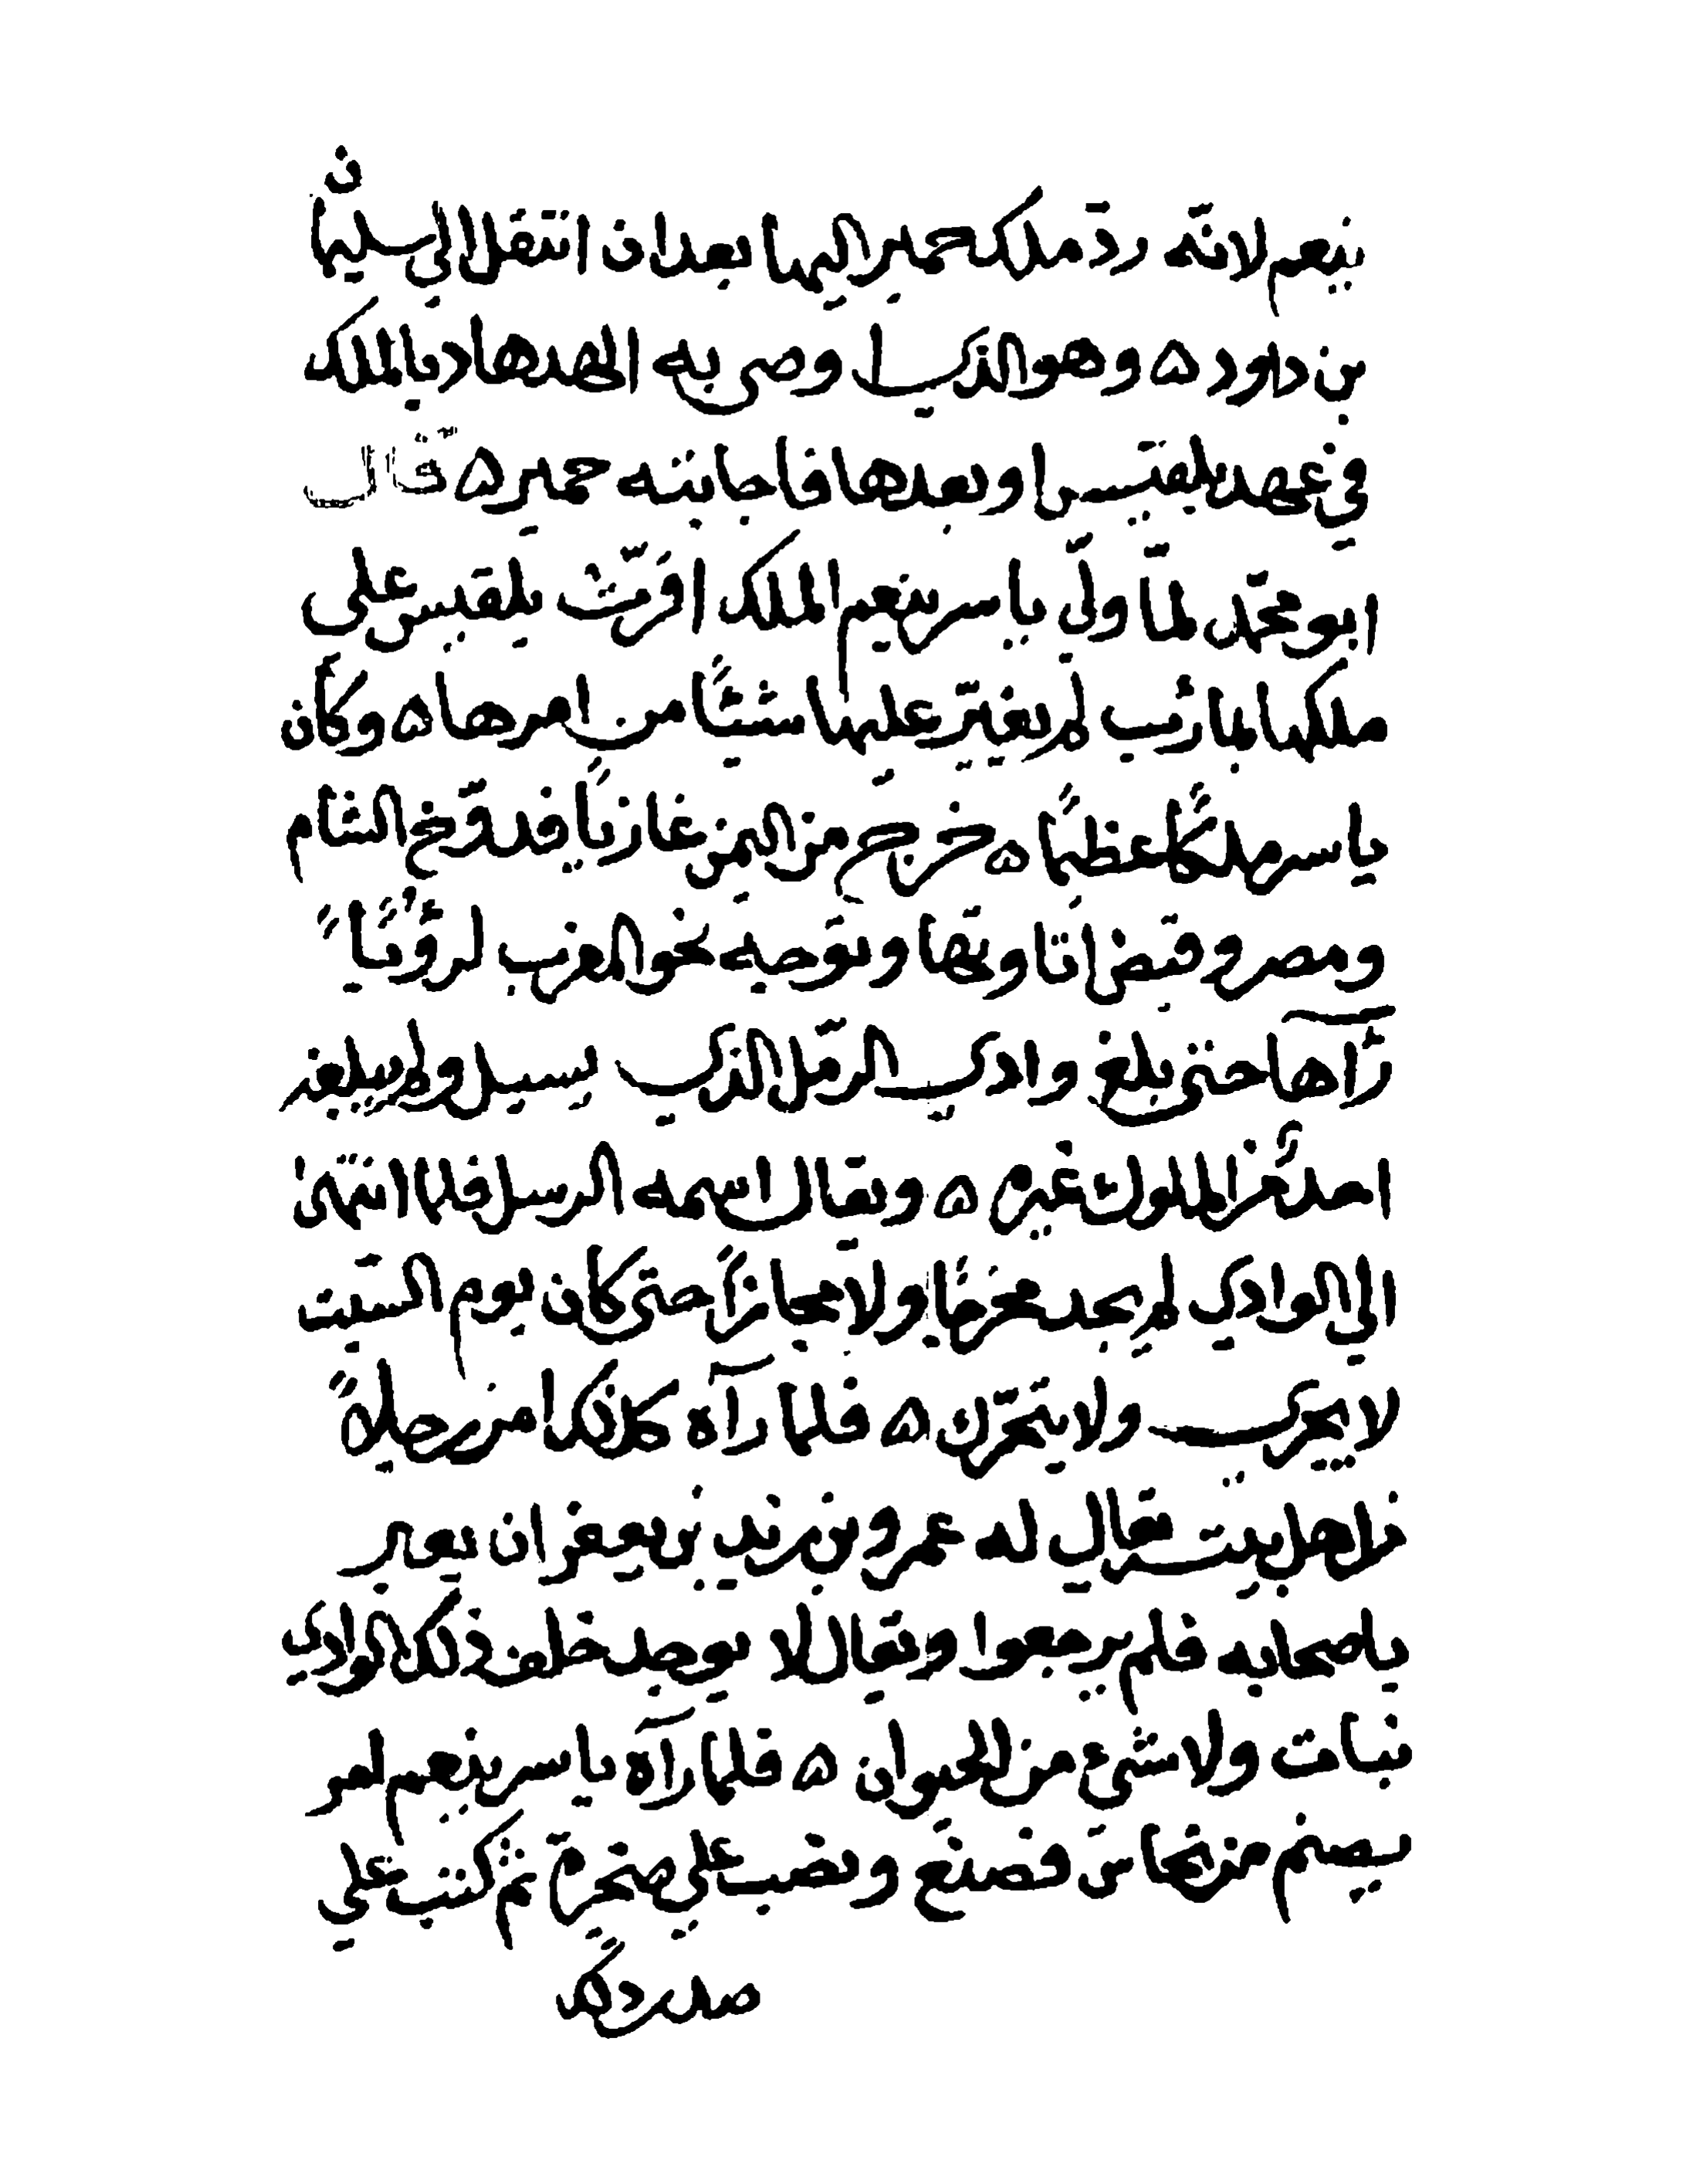 ينعم لانّه ردّ ملك حمير اليها بعد ان انتقل الي سليمان
بن داود ۵ وهو الذي وصي به الهدهاد بالملك
في عهد بلقيس او بعدها فاجابته حمير ۵ قال
ابو محمّد لمّا ولّي ياسر ينعم الملك اقرّت بلقيس على
ملكها بمارب لم يغيّر عليها شيئًا من امرها ۵ وكان
ياسر ملكًا عظيمًا ۵ خرج من اليمن غازيًا فدوّخ الشام
ومصر وقبض اتاوتها وتوجه نحو المغرب لرؤيًا
رآها حتى بلغ وادي الرمل الذي يسيل ولم يبلغه
احدٌ من الملوك غيره ۵ ويقال اسمه الرسل فلما انتهى
الي الوادي لم يجد مخرجًا ولا مجازًا حتى كان يوم السبت
لا يجري ولا يتحرّك ۵ فلما رآه كذلك امر رجلاً
من اهل بيته يقال له عمرو بن زيد بن يعفر ان يعبر
باصحابه فلم يرجعوا ويقال لا يوجد خلف ذلك الوادي
نبات ولا شيء من الحيوان ۵ فلما رآه ياسر ينعم امر
بصنم من نحاس فصنع ونصب علي صخرة ثم كتب علي
صدره